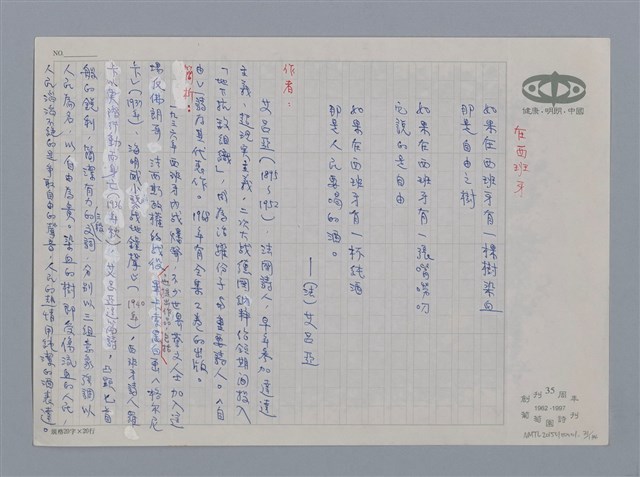 NO.
健康・明朗・中國
在西班牙
如果在西班牙有一棵樹染血
那是自由之樹
如果在西班牙有一張嘴嘮叨
它說的是自由
如果在西班牙有一杯純酒
那是人民要喝的酒。
——(法)艾呂亞
作者：
艾呂亞(1895～1952)，法國詩人。早年參加達達
主義、超現實主義。二次大戰德國納粹佔領期間投入
「地下抗敵組織」，成為活躍份子與重要詩人。〈自
由〉一詩為其代表作。1968年有全集2卷的出版。
簡析：
一九三六年西班牙內戰爆發，不少世界藝文人士加入這
場反佛朗哥
卡〉(1937年)、海明威小說〈戰地鐘聲〉(1940年)、西班牙詩人羅
艾呂亞這首短詩，白話
般的銳利，簡潔有力的文詞，分別以三組意象強調以
人民為名，以自由為貴。染血的樹即受傷流血的人民，
人民滔滔不絕的是爭取自由的聲音，人民的熱情用純潔的酒表達。
規格20字×20行
創刊35周年
1962-1997
葡萄園詩刊